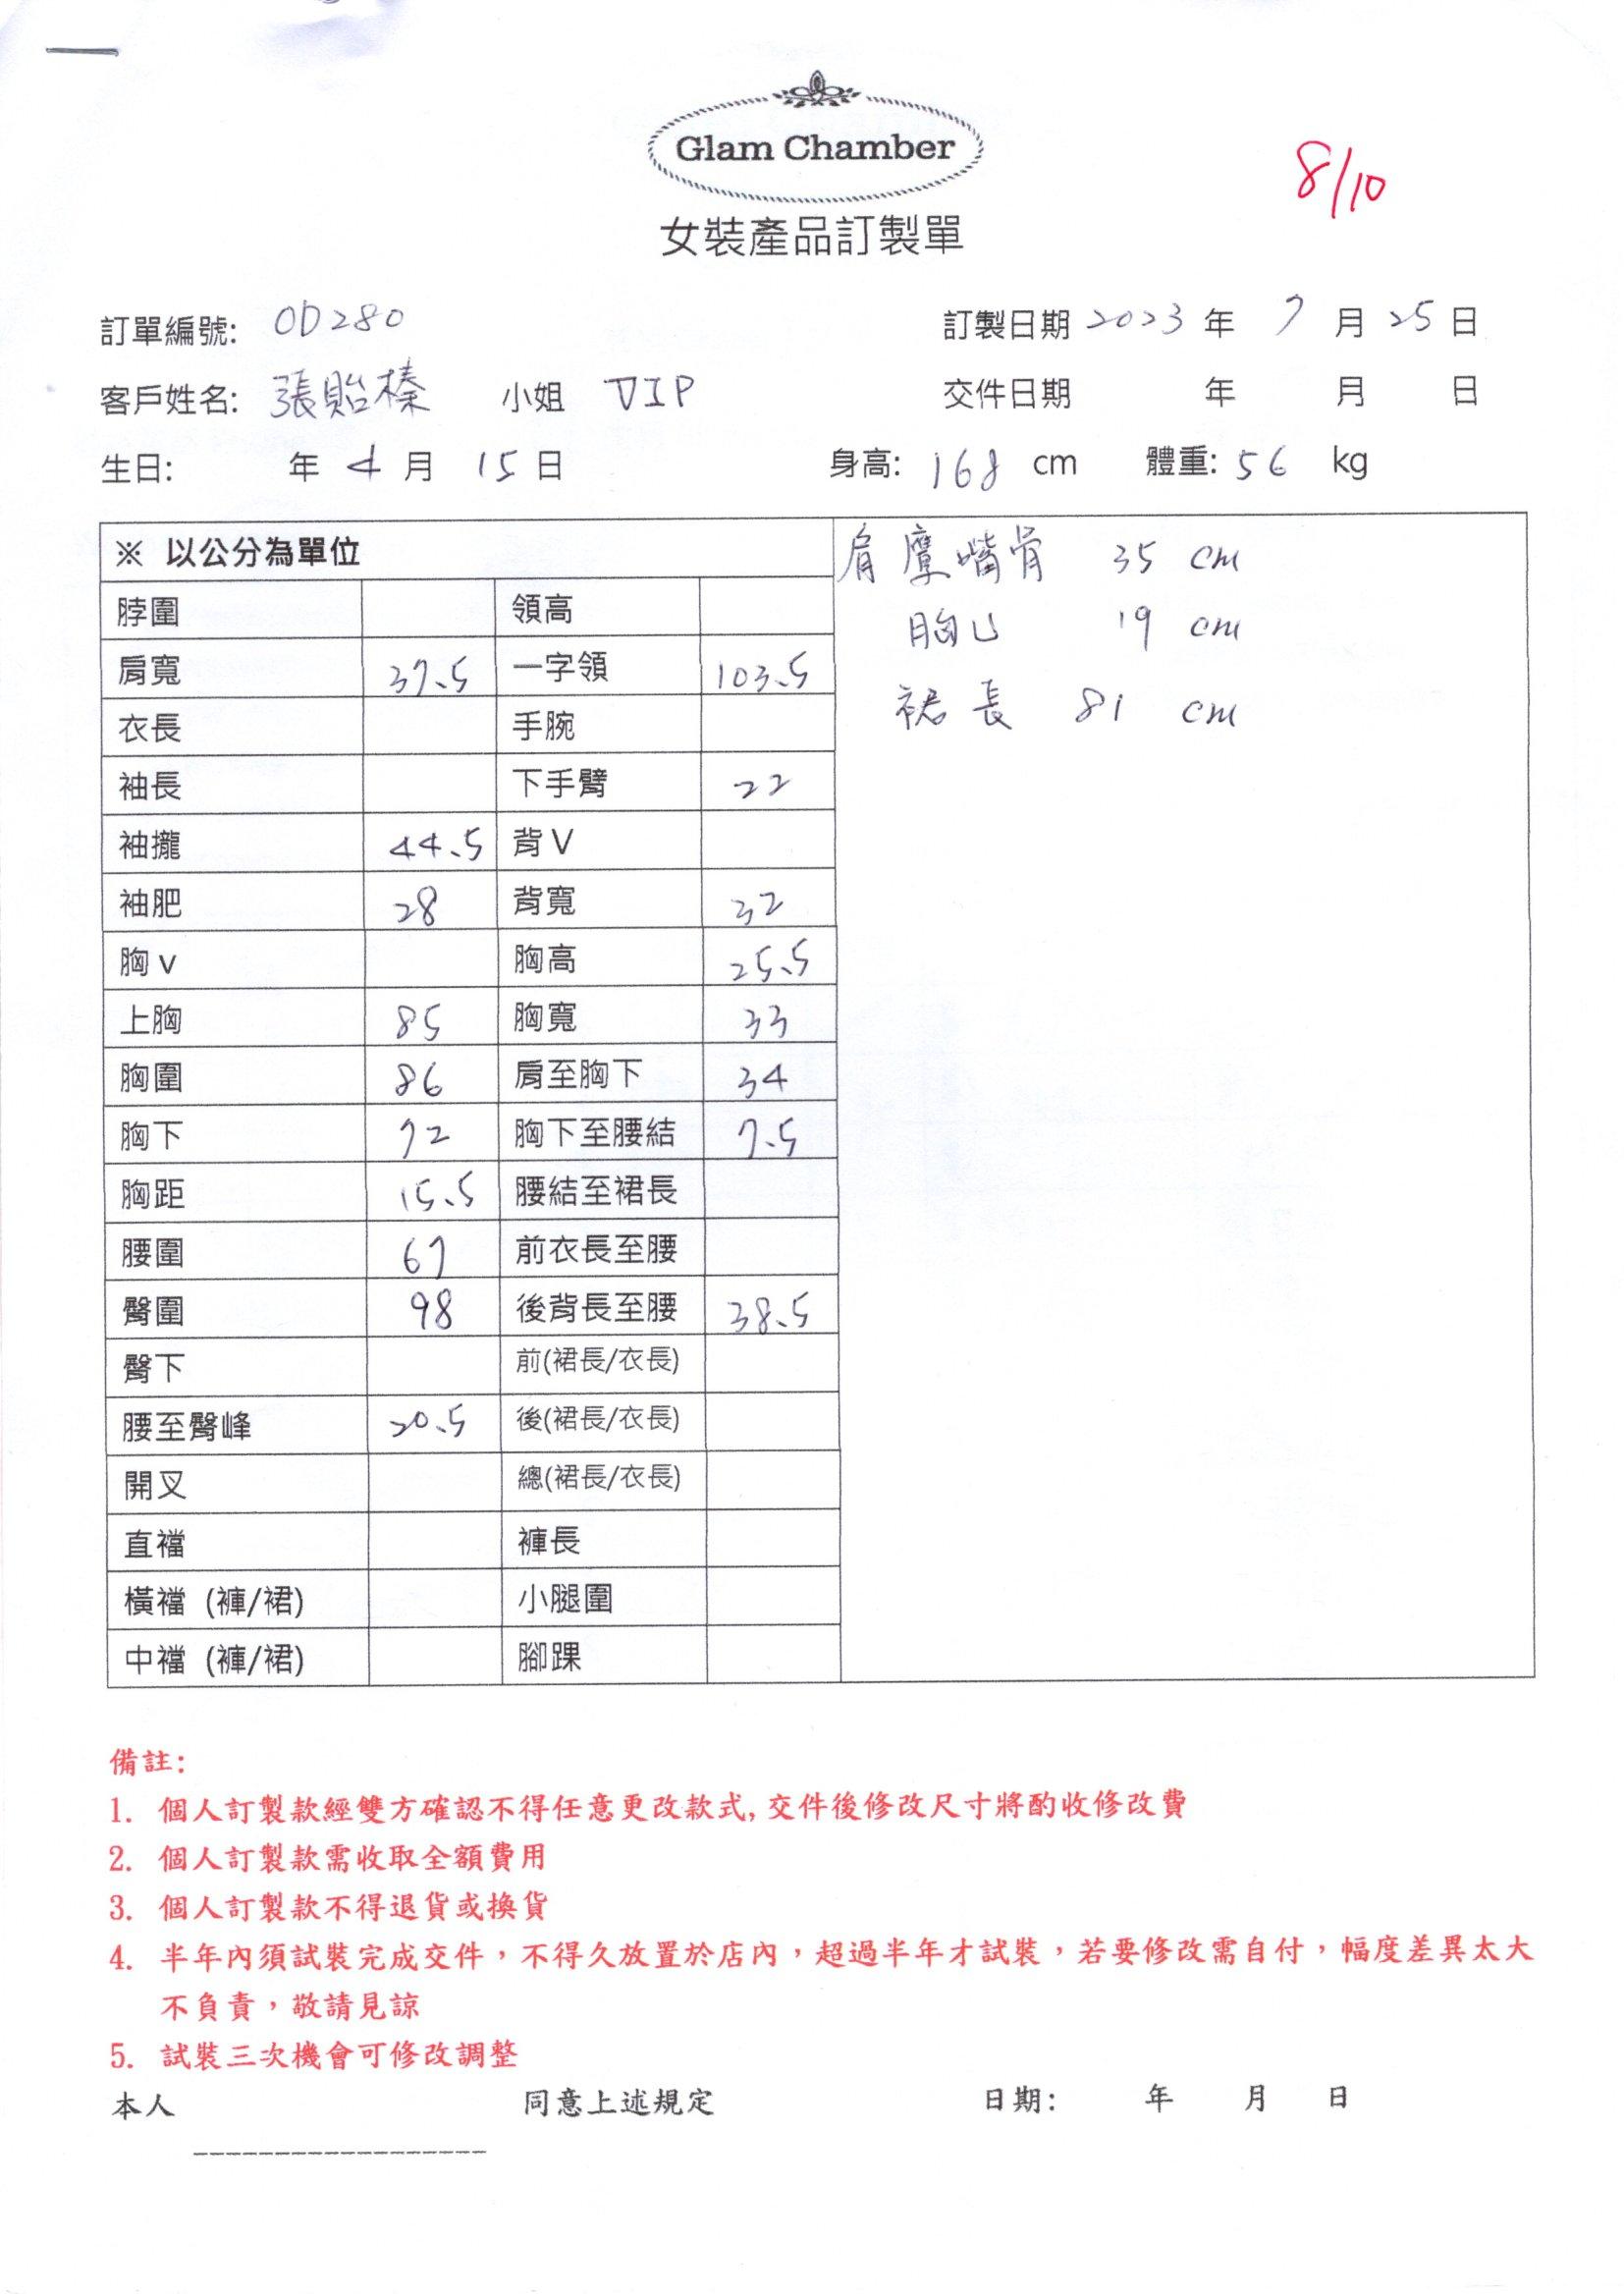 Glam Chamber
8/10
女裝產品訂製單
訂單編號: OD280 訂製日期 2023 年 7 月 25 日
客戶姓名: 張貽榛 小姐 VIP 交件日期 年 月 日
生日: 年 4 月 15 日 身高: 168 cm 體重: 56 kg
※ 以公分為單位
肩鷹嘴骨 35 cm
胸U 19 cm
裙長 81 cm
脖圍 領高
肩寬 37.5 一字領 103.5
衣長 手腕
袖長 下手臂 22
袖攏 44.5 背V
袖肥 28 背寬 32
胸v 胸高 25.5
上胸 85 胸寬 33
胸圍 86 肩至胸下 34
胸下 72 胸下至腰結 7.5
胸距 15.5 腰結至裙長
腰圍 67 前衣長至腰
臀圍 98 後背長至腰 38.5
臀下 前(裙長/衣長)
腰至臀峰 20.5 後(裙長/衣長)
開叉 總(裙長/衣長)
直襠 褲長
橫襠 (褲/裙) 小腿圍
中襠 (褲/裙) 腳踝
備註:
1. 個人訂製款經雙方確認不得任意更改款式,交件後修改尺寸將酌收修改費
2. 個人訂製款需收取全額費用
3. 個人訂製款不得退貨或換貨
4. 半年內須試裝完成交件，不得久放置於店內，超過半年才試裝，若要修改需自付，幅度差異太大
不負責，敬請見諒
5. 試裝三次機會可修改調整
本人 同意上述規定 日期: 年 月 日